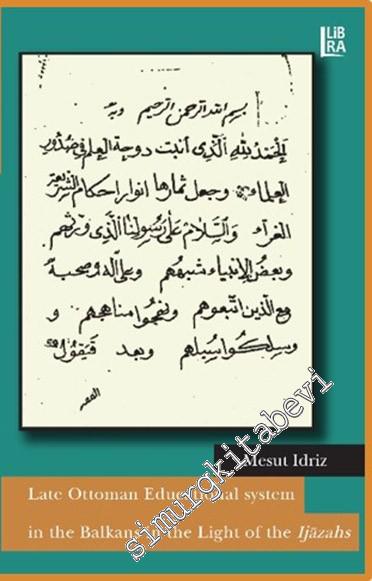 LiB
RA
بسم الله الرحمن الرحيم وبه
الحمد لله الذي أنبت دوحة العلم في صدور
العلماء وجعل ثمارها انوار احكام الشريعة
الغراء والسلام على رسولنا الذي ورثهم
وبعض الانبياء شبههم وعلى اله وصحبه
مع الذين اتبعوهم ونهجوا مناهجهم و
وسلكوا سبيلهم وبعد فيقول
Mesut Idriz
Late Ottoman Educational system
in the Balkans in the Light of the Ijāzahs
simurgkitabevi